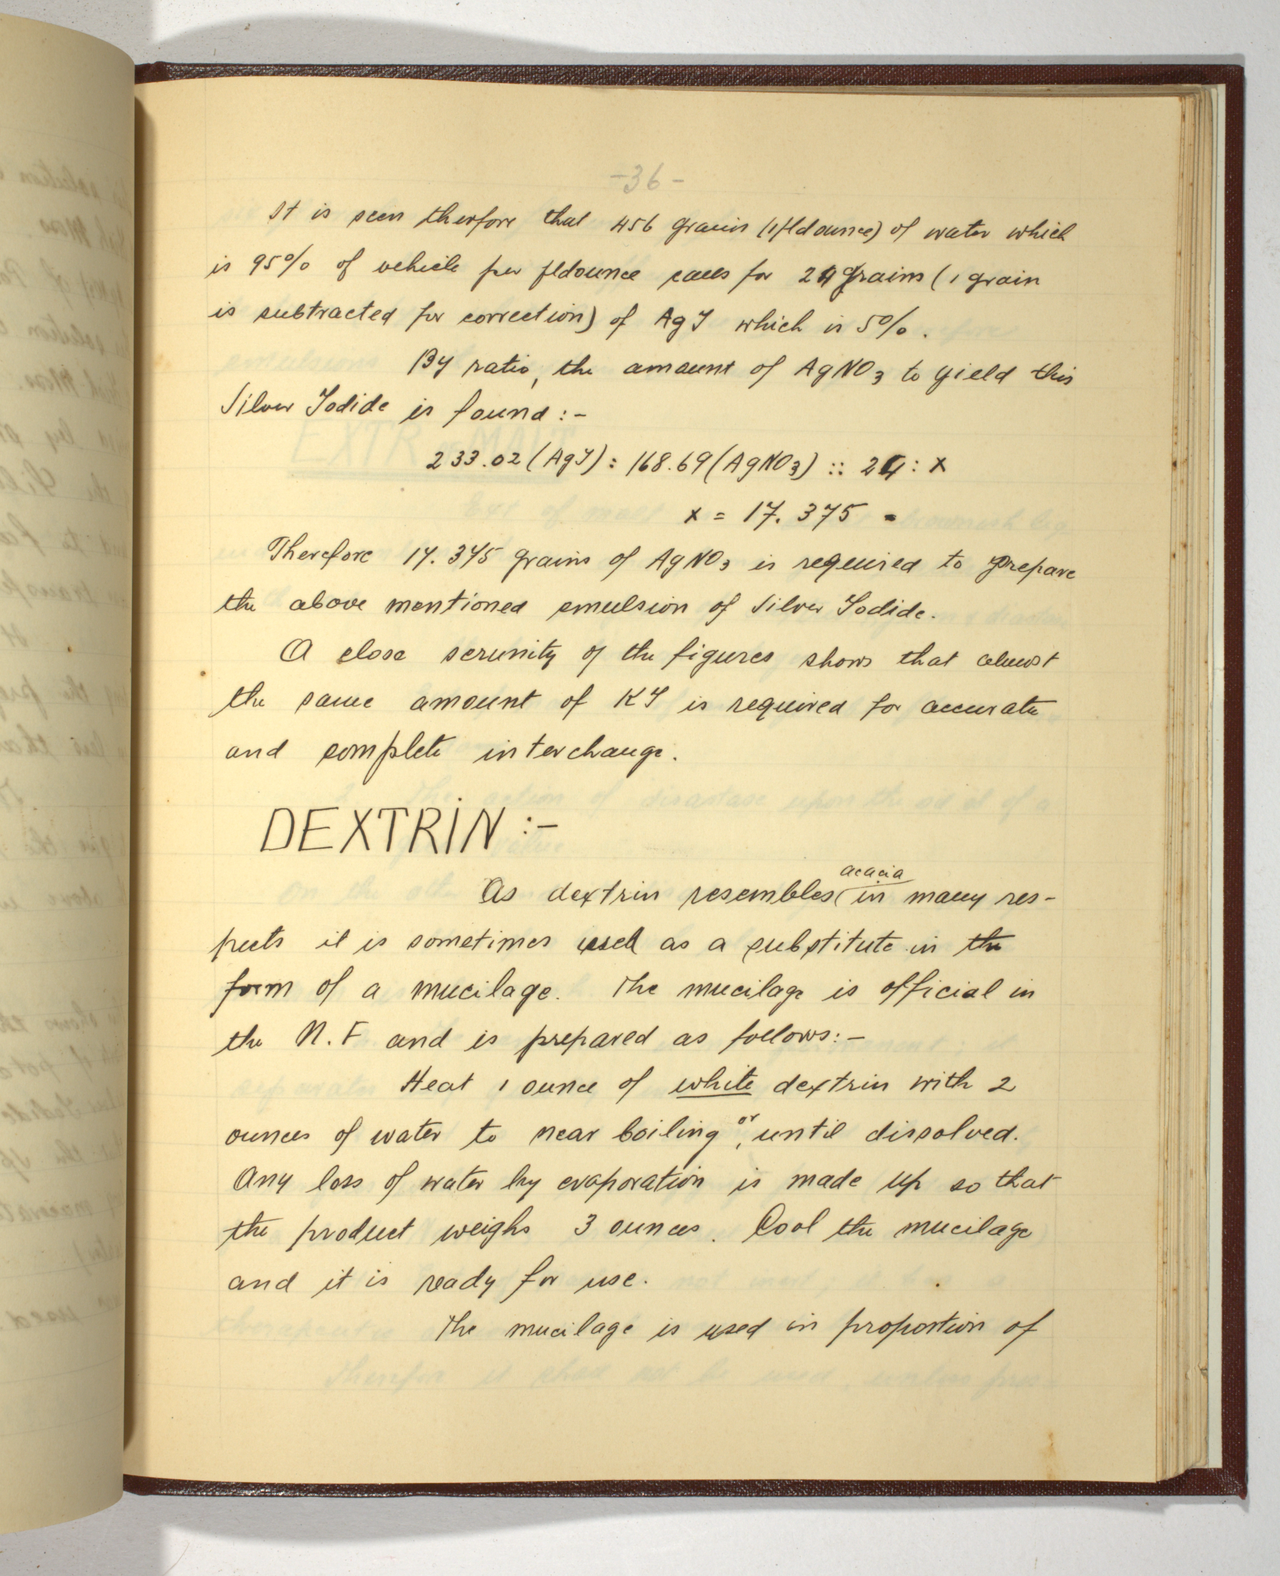 -36-
It is seen therfore that 456 grains (1 fldounce) of water which
is 95% of vehicle per fldounce calls for 24 grains (1 grain
is subtracted for correction) of AgI which is 5%.
By ratio, the amount of AgNO3 to yield this
Silver Iodide is found :-
233.02 (AgI) : 168.69 (AgNO3) :: 24 : x
x = 17.375
Therefore 17.375 grains of AgNO3 is required to prepare
the above mentioned emulsion of Silver Iodide.
A close scrunity of the figures, shows that almost
the same amount of KI is required for accurate
and complete interchange.
DEXTRIN :-
acacia
As dextrin resembles in many res-
pects it is sometimes used as a substitute in the
form of a mucilage. The mucilage is official in
the N.F and is prepared as follows:-
Heat 1 ounce of white dextrin with 2
ounces of water to near boiling or, until dissolved.
Any loss of water by evaporation is made up so that
the product weighs 3 ounces. Cool the mucilage
and it is ready for use.
The mucilage is used in proportion of